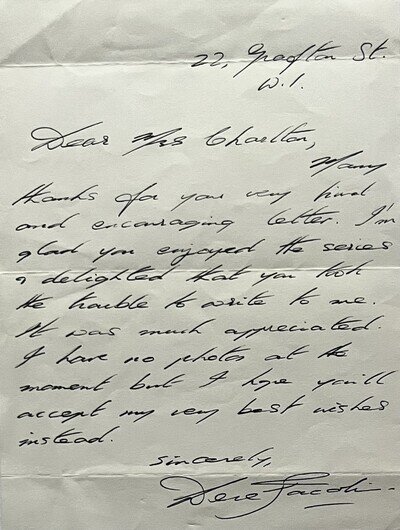 22, Grafton St.
W.1.
Dear Mrs Charlton,
Many
thanks for your very kind
and encouraging letter. I'm
glad you enjoyed the series
& delighted that you took
the trouble to write to me.
It was much appreciated.
I have no photos at the
moment but I hope you'll
accept my very best wishes
instead.
Sincerely,
Derek Jacobi